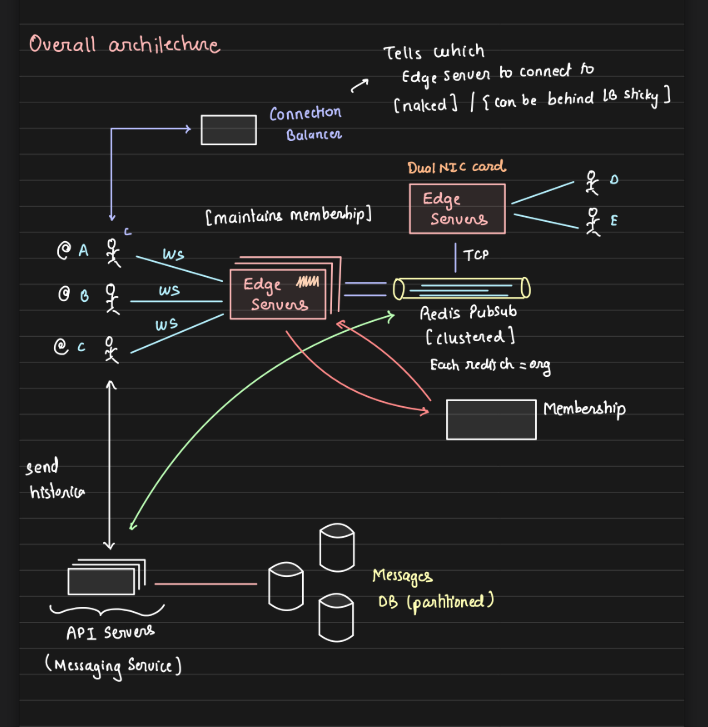 Overall architecture
Tells which
Edge Server to connect to
[naked] / { can be behind LB sticky ]
Connection
Balancer
Dual NIC card
Edge
Servers
D
E
[maintains membership]
C
@ A
WS
@ B
WS
@ C
WS
Edge
Servers
TCP
Redis Pubsub
[clustered]
Each redis ch = org
Membership
send
historica
Messages
DB (partitioned)
API Servers
(Messaging Service]